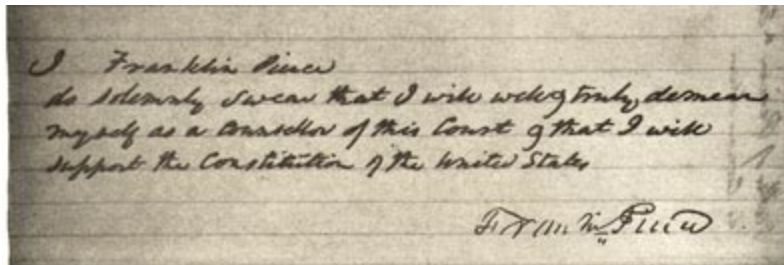 I Franklin Pierce
do solemnly swear that I will well & truly demean
myself as a Counsellor of this Court & that I will
support the Constitution of the United States
Frankn Pierce